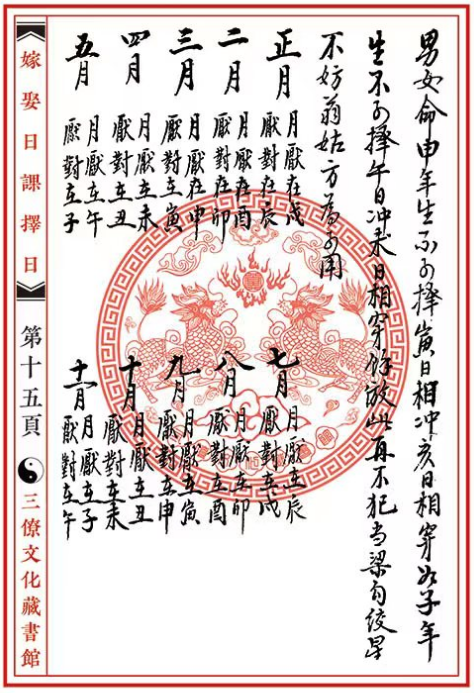 男女命申年生不可擇寅日相冲亥日相穿如子年
生不可擇午日冲未日相穿餘放此再不犯当梁勾绞星
不妨翁姑方為可用
正月 月厭在戌 厭對在辰
二月 月厭在酉 厭對在卯
三月 月厭在申 厭對在寅
四月 月厭在未 厭對在丑
五月 月厭在午 厭對在子
七月 月厭在辰 厭對在戌
八月 月厭在卯 厭對在酉
九月 月厭在寅 厭對在申
十月 月厭在丑 厭對在未
十一月 月厭在子 厭對在午
嫁娶日課擇日
第十五頁
三僚文化藏書館